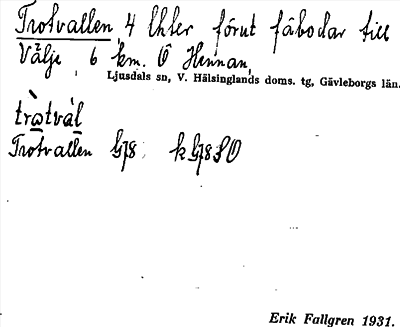 Trotvallen, 4 lhter förut fäbodar till
Välje, 6 km. Ö Hennan,
Ljusdals sn, V. Hälsinglands doms. tg, Gävleborgs län.
Trotvallen G78 k G78 SO
Erik Fallgren 1931.